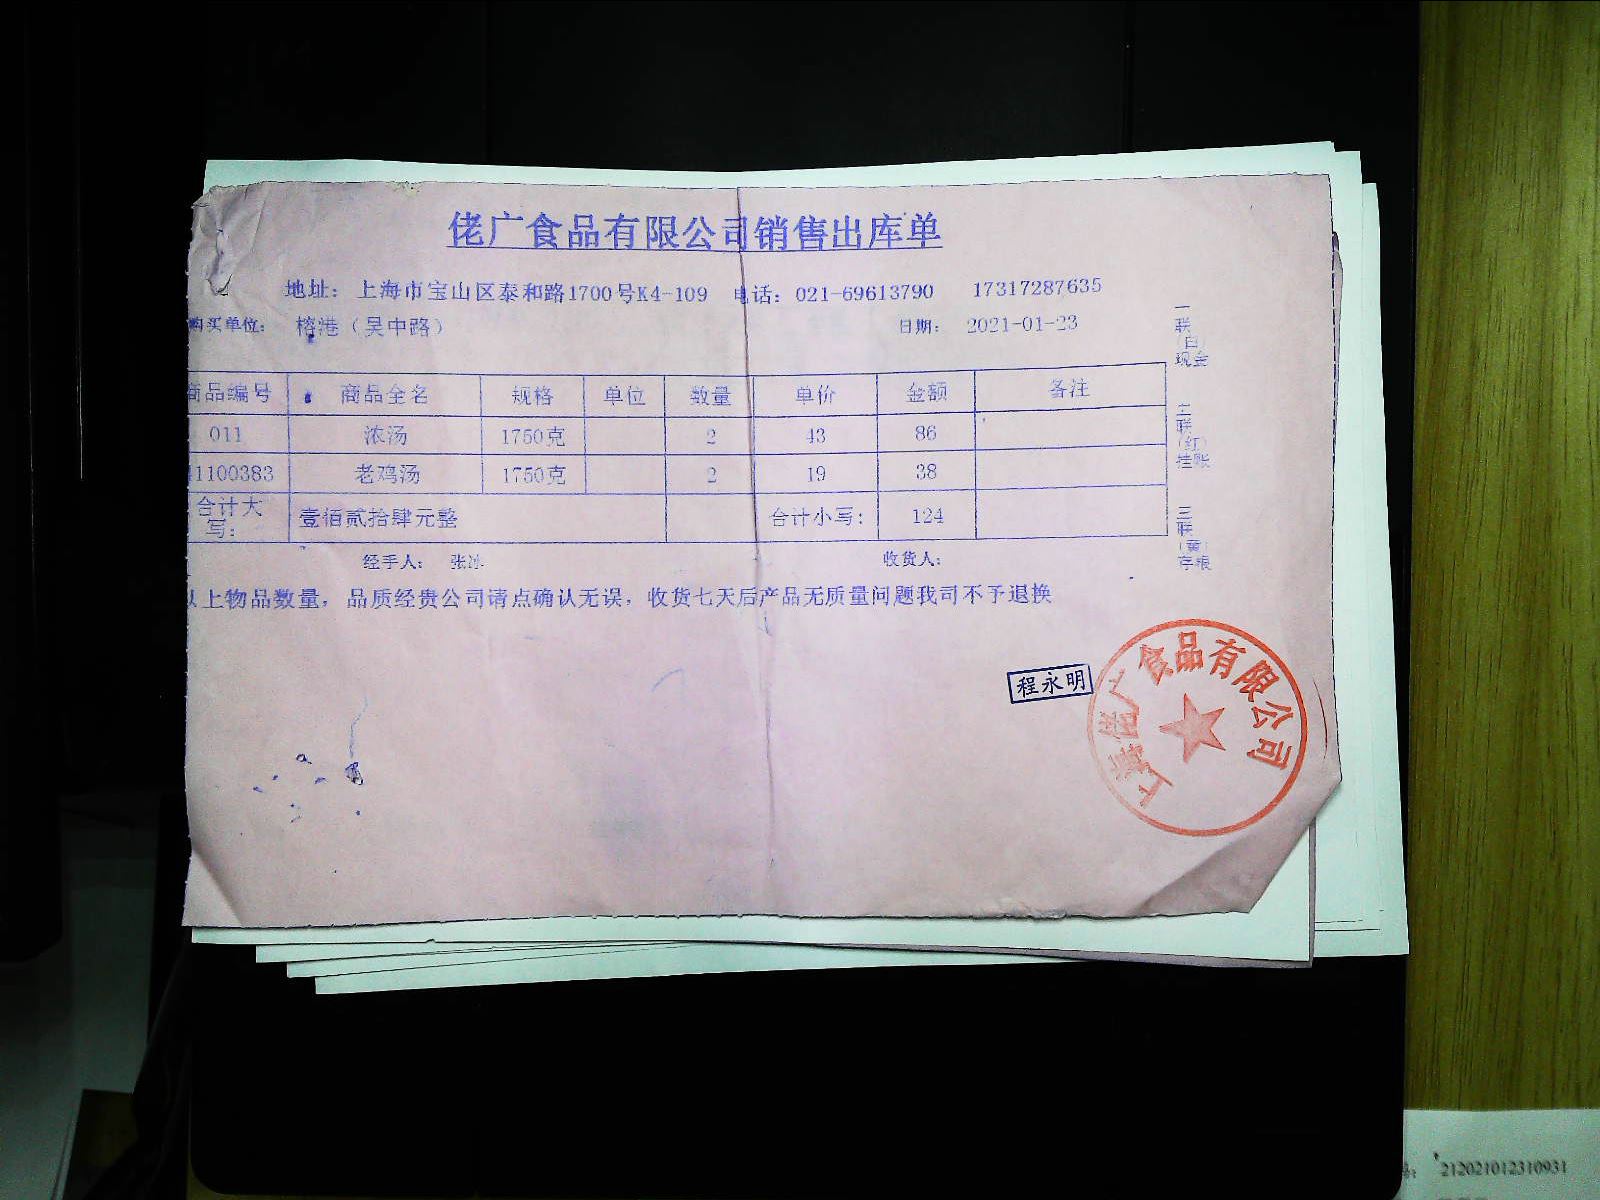 佬广食品有限公司销售出库单
地址：上海市宝山区泰和路1700号K4-109 电话：021-69613790 17317287635
购买单位： 榕港（吴中路） 日期： 2021-01-23
商品编号 商品全名 规格 单位 数量 单价 金额 备注
011 浓汤 1750克 2 43 86
1100383 老鸡汤 1750克 2 19 38
合计大写： 壹佰贰拾肆元整 合计小写： 124
经手人： 张冰 收货人：
以上物品数量，品质经贵公司请点确认无误，收货七天后产品无质量问题我司不予退换
一联（白）现金
二联（红）挂账
三联（黄）存根
程永明
上海佬广食品有限公司
212021012310931